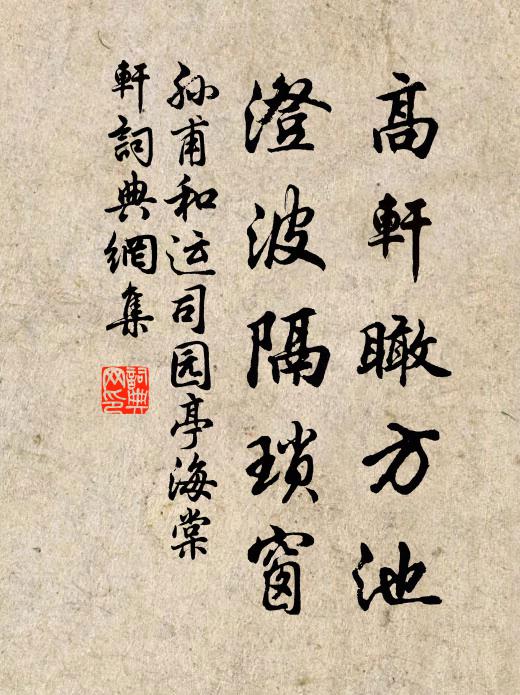 高軒瞰方池
澄波隔瑣窗
孙甫和运司园亭海棠
軒詞典網集
詞典网印